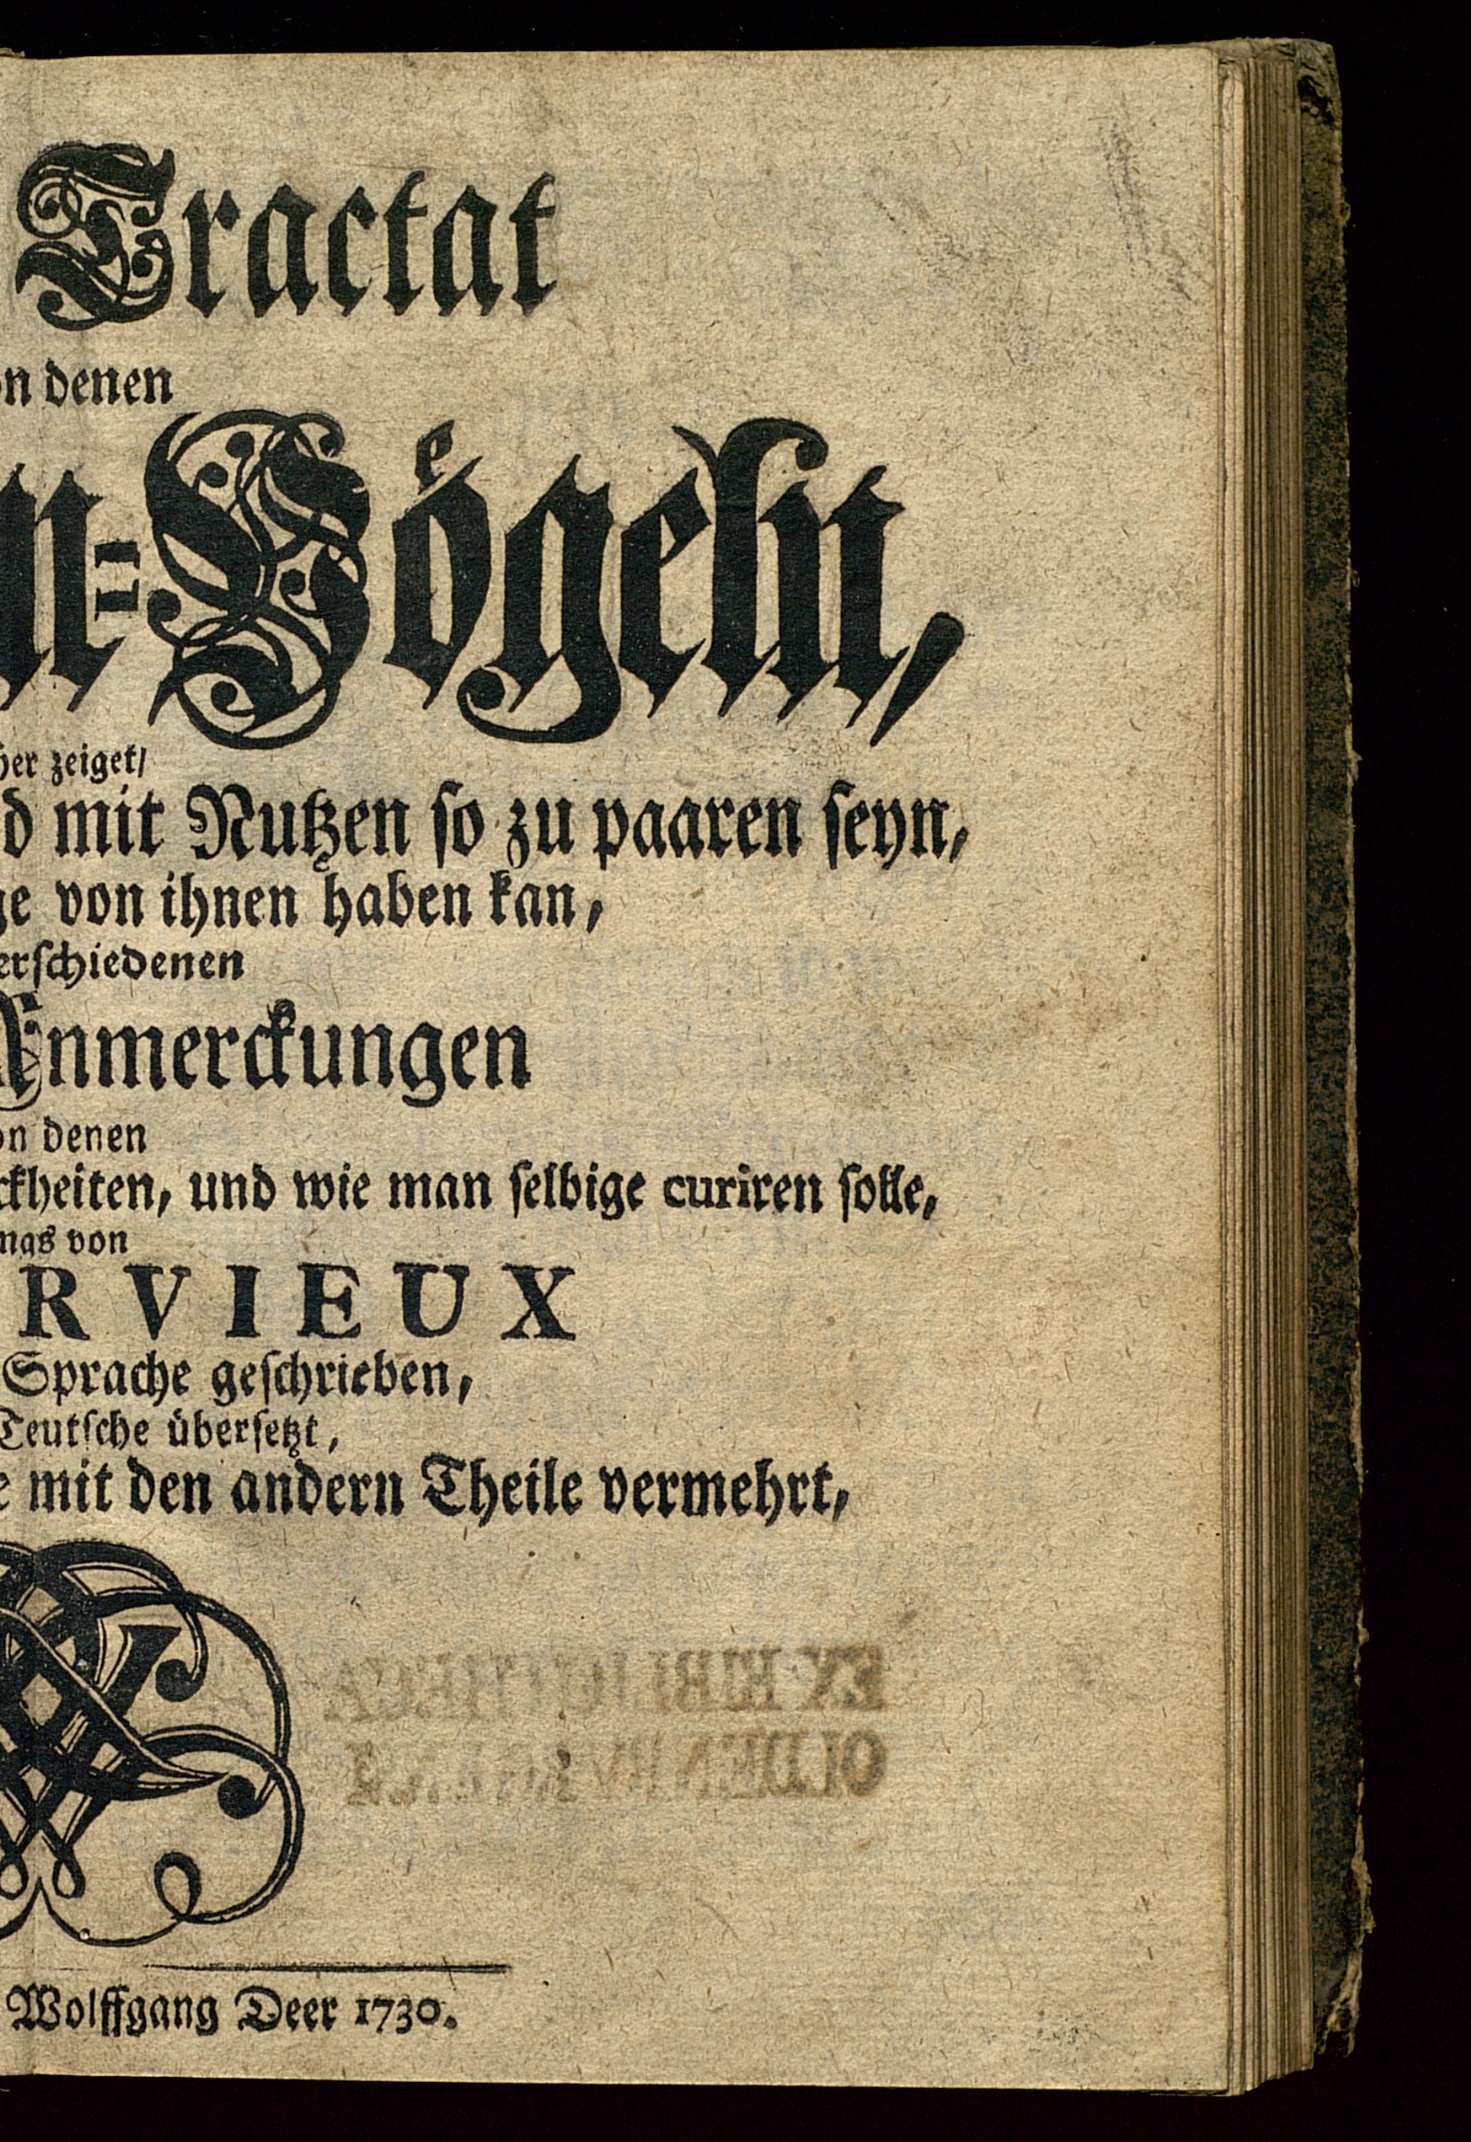 Tractat
on denen
n-Vögeln,
her zeiget/
d mit Nutzen so zu paaren seyn,
ge von ihnen haben kan,
erschiedenen
Anmerckungen
on denen
ckheiten, und wie man selbige curiren solle,
ngs von
RVIEUX
Sprache geschrieben,
Teutsche übersetzt,
e mit den andern Theile vermehrt,
EX BIBLIOTHECA
OLDENBVRGENSI
Wolffgang Deer 1730.